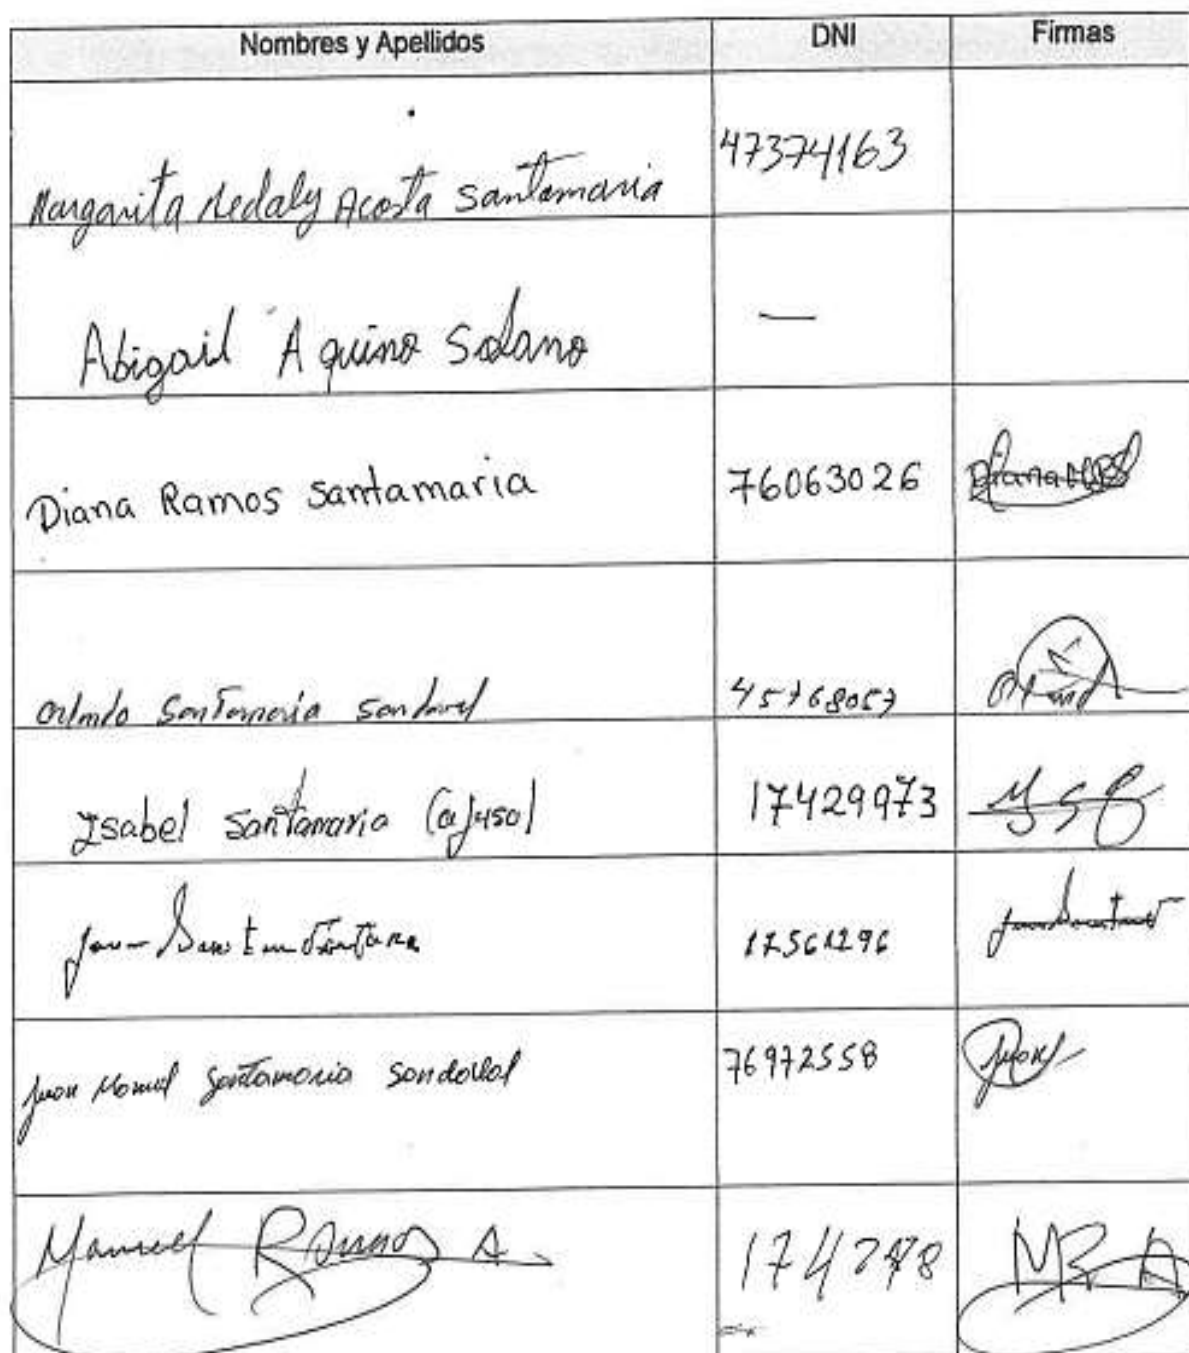 Nombres y Apellidos DNI Firmas
Margarita Nedaly Acosta Santamaria 47374163
Abigail Aquino Solano —
Diana Ramos Santamaria 76063026 Diana
Orlando Santamaria Sandoval 45768057
Isabel Santamaria Cajuso 17429973 YSC
Juan Ventura 17561296
Juan Manuel Santamaria Sandoval 76972558 Juan
Manuel Ramos A. MRA